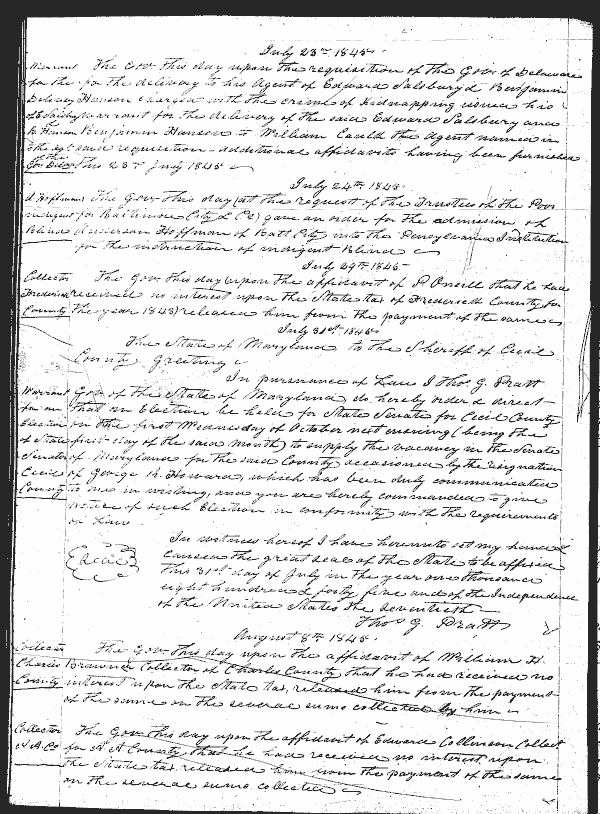 July 23rd 1845.
Warrant The Govr this day upon the requisition of the Govr of Delaware
for the for the delivery to his Agent of Edward Salsbury & Benjamin
Delivery Hanson charged with the crime of kidnapping issued his
of E Salsbury warrant for the delivery of the said Edward Salsbury and
B. Hanson Benjamin Hanson to William Caulk the Agent named in
to the agt said requisition - additional affidavits having been furnished
for Del this 23rd July 1845
July 24th 1845.
A Hoffman The Govr this day (at the request of the Trustees of the Poor
indigent for Baltimore City & Co) gave an order for the admission of
Blind Anderson Hoffman of Balt City into the Pensylvania Institution
for the instruction of indigent Blind
July 29th 1845
Collector The Govr this day (upon the affidavit of P. Oneill that he had
Frederick received no interest upon the State tax of Frederick County for
County the year 1843) released him from the payment of the same
July 31st 1845
The State of Maryland to the Sheriff of Cecil
County, Greeting
In pursuance of Law I Thos G. Pratt
Warrant Govr of the State of Maryland do hereby order & direct
for an that an Election be held for State Senate for Cecil County
Election on the first Wednesday of October next ensuing (being the
of State first day of the said month) to supply the vacancy in the Senate
Senator of Maryland for the said County, occasioned by the resignation
Cecil of George R. Howard, which has been duly communicated
County to me in writing, and you are hereby commanded to give
notice of such Election in conformity with the requirements
of Law.
In witness hereof I have hereunto set my hand &
Seal
caused the great seal of the State to be affixed
this 31st day of July in the year one thousand
eight hundred & forty five and of the Independence
of the United States the seventieth
Thos G. Pratt
August 8th 1845.
Collector The Govr this day upon the affidavit of William H.
Charles Brawner Collector of Charles County that he had received no
County interest upon the State tax, released him from the payment
of the same on the several sums collected by him
Collector The Govr this day upon the affidavit of Edward Collinson Collect
A. A. Co for A A County that he had received no interest upon
the State tax released him from the payment of the same
on the several sums collected